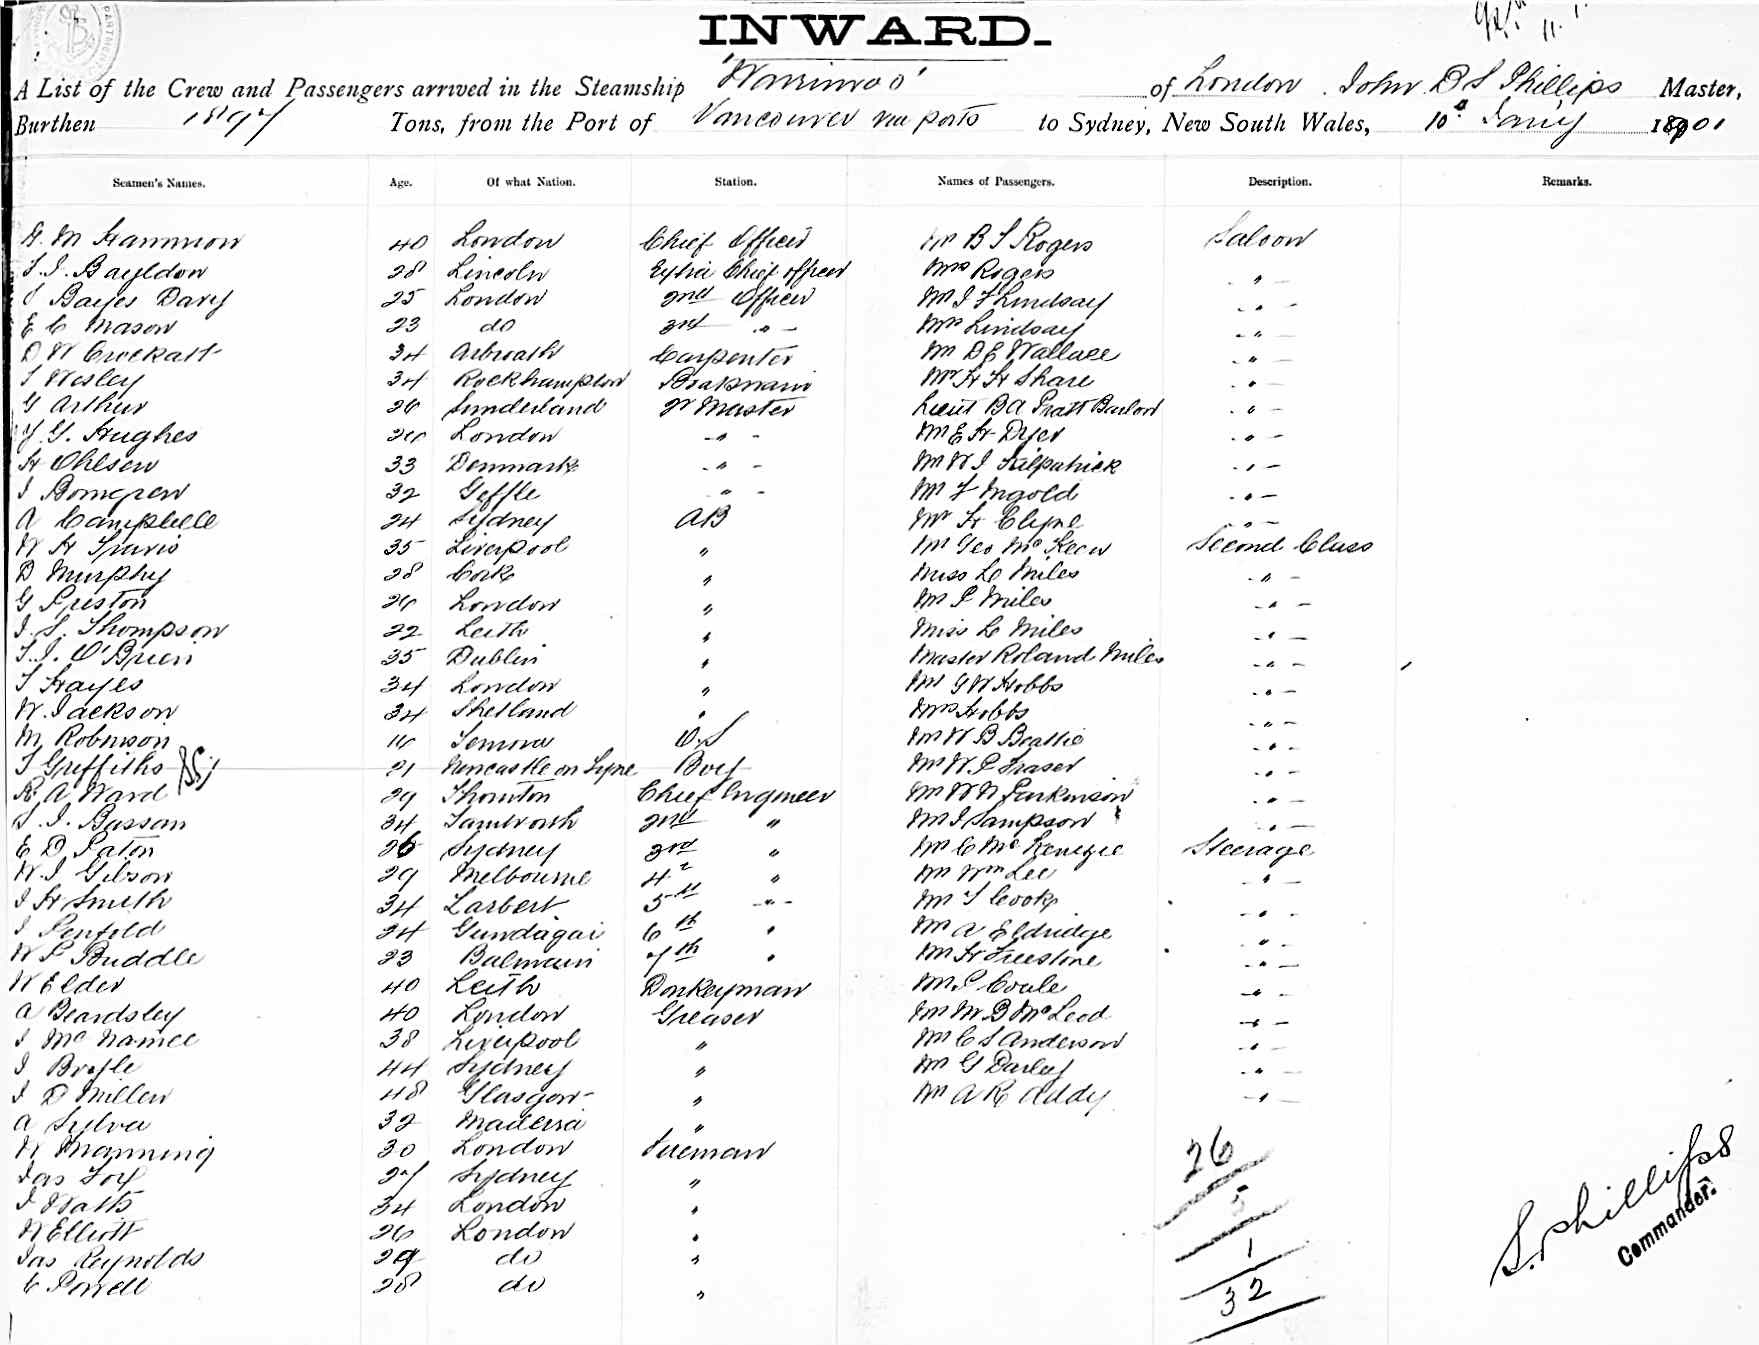 INWARD.
A List of the Crew and Passengers arrived in the Steamship 'Warrimoo' of London John D S Phillips Master,
Burthen 1897 Tons, from the Port of Vancouver via ports to Sydney, New South Wales, 10 Jany 1901
Seamen's Names. Age. Of what Nation. Station. Names of Passengers. Description. Remarks.
G. M Hammon 40 London Chief Officer Mr B S Rogers Saloon
Bayldon 28 Lincoln Extra Chief officer Mrs Rogers " —
Bayes Davy 25 London 2nd Officer Mr J F Lindsay " —
E C Mason 23 do 3rd " — Mrs Lindsay " —
D W Crockatt 34 Arbroath Carpenter Mr D E Wallace " —
Wesley 34 Rockhampton Mr H H Share " —
G Arthur 26 Sunderland Qr Master Lieut B A Pratt Barlow " —
Y G. Hughes 26 London " - Mr E H Dyer " —
H Ohlsen 33 Denmark " - Mr W J Kilpatrick " —
J Bomgren 32 Geffle " - Mr F Ingold " —
A Campbell 24 Sydney AB Mr H Clyne " —
W H Travis 35 Liverpool " Mr Geo McKeen Second Class
D Murphy 28 Cork " Miss L Miles " —
G Preston 26 London " Mr P Miles " —
J. S. Thompson 22 Leith " Miss L Miles " —
T. J. O'Brien 35 Dublin " Master Roland Miles " —
T Hayes 34 London " Mr G W Hobbs " —
W. Jackson 34 Shetland " Mrs Hobbs " —
M Robinson 16 O.S Mr W B Beattie " —
T Griffiths 21 Newcastle on Tyne Boy Mr W. P Fraser " —
A Ward 29 Thornton Chief Engineer Mr W N Parkinson " —
Bassan 34 Tamworth 2nd " Mr J Sampson " —
E D Paton 26 Sydney 3rd " Mr C McKenzie Steerage
W. J Gibson 29 Melbourne 4th " Mr Wm Lee " —
J H Smith 34 Larbert 5th " Mr T Cook " —
J Penfold 24 Gundagai 6th " Mr A Eldridge " —
W P Buddle 23 Balmain 7th " Mr H Freestone " —
W Elder 40 Leith Donkeyman Mr P Coule " —
A Beardsley 40 London Greaser Mr M B McLeod " —
J McNamee 38 Liverpool " Mr C S Anderson " —
J Boyle 44 Sydney " Mr G Darley " —
J D Miller 48 Glasgow " Mr A R Addy " —
A Sylva 32 Maderia "
W Manning 30 London Fireman
Jas Foy 27 Sydney "
J Watts 34 London "
W Elliott 26 London "
Jas Reynolds 29 do "
C Powell 28 do "
26
5
1
32
S. Phillips
Commander.